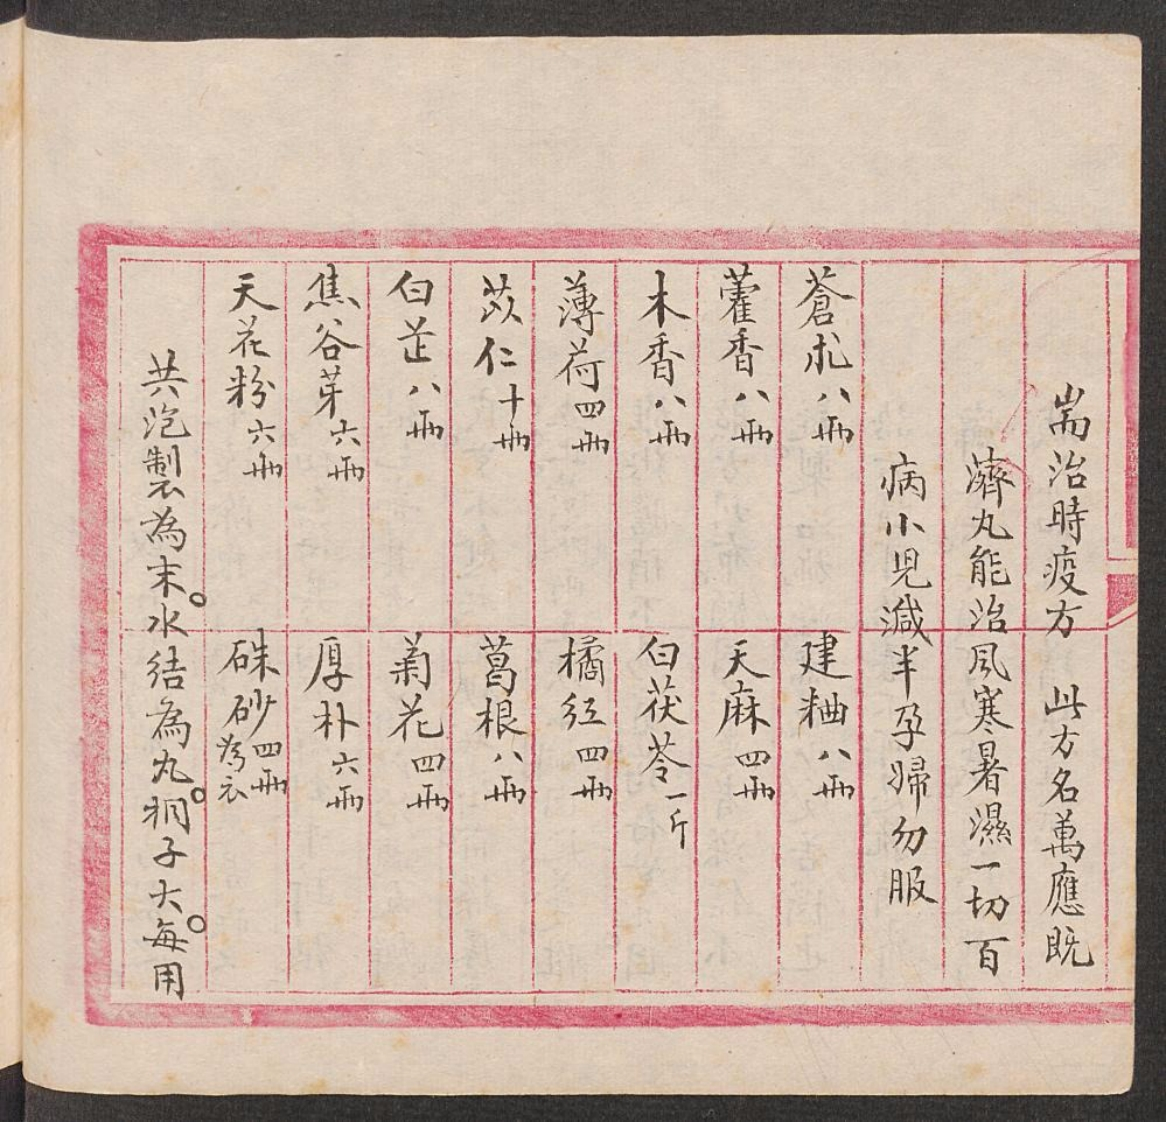 耑治時疫方　此方名萬應既
濟丸能治風寒暑濕一切百
病小児減半孕婦勿服
蒼朮八兩　建粬八兩
藿香八兩　天麻四兩
木香八兩　白茯苓一斤
薄荷四兩　橘红四兩
苡仁十兩　葛根八兩
白芷八兩　菊花四兩
焦谷芽六兩　厚朴六兩
天花粉六兩　硃砂四兩為衣
共泡製為末。水结為丸。桐子大。每用